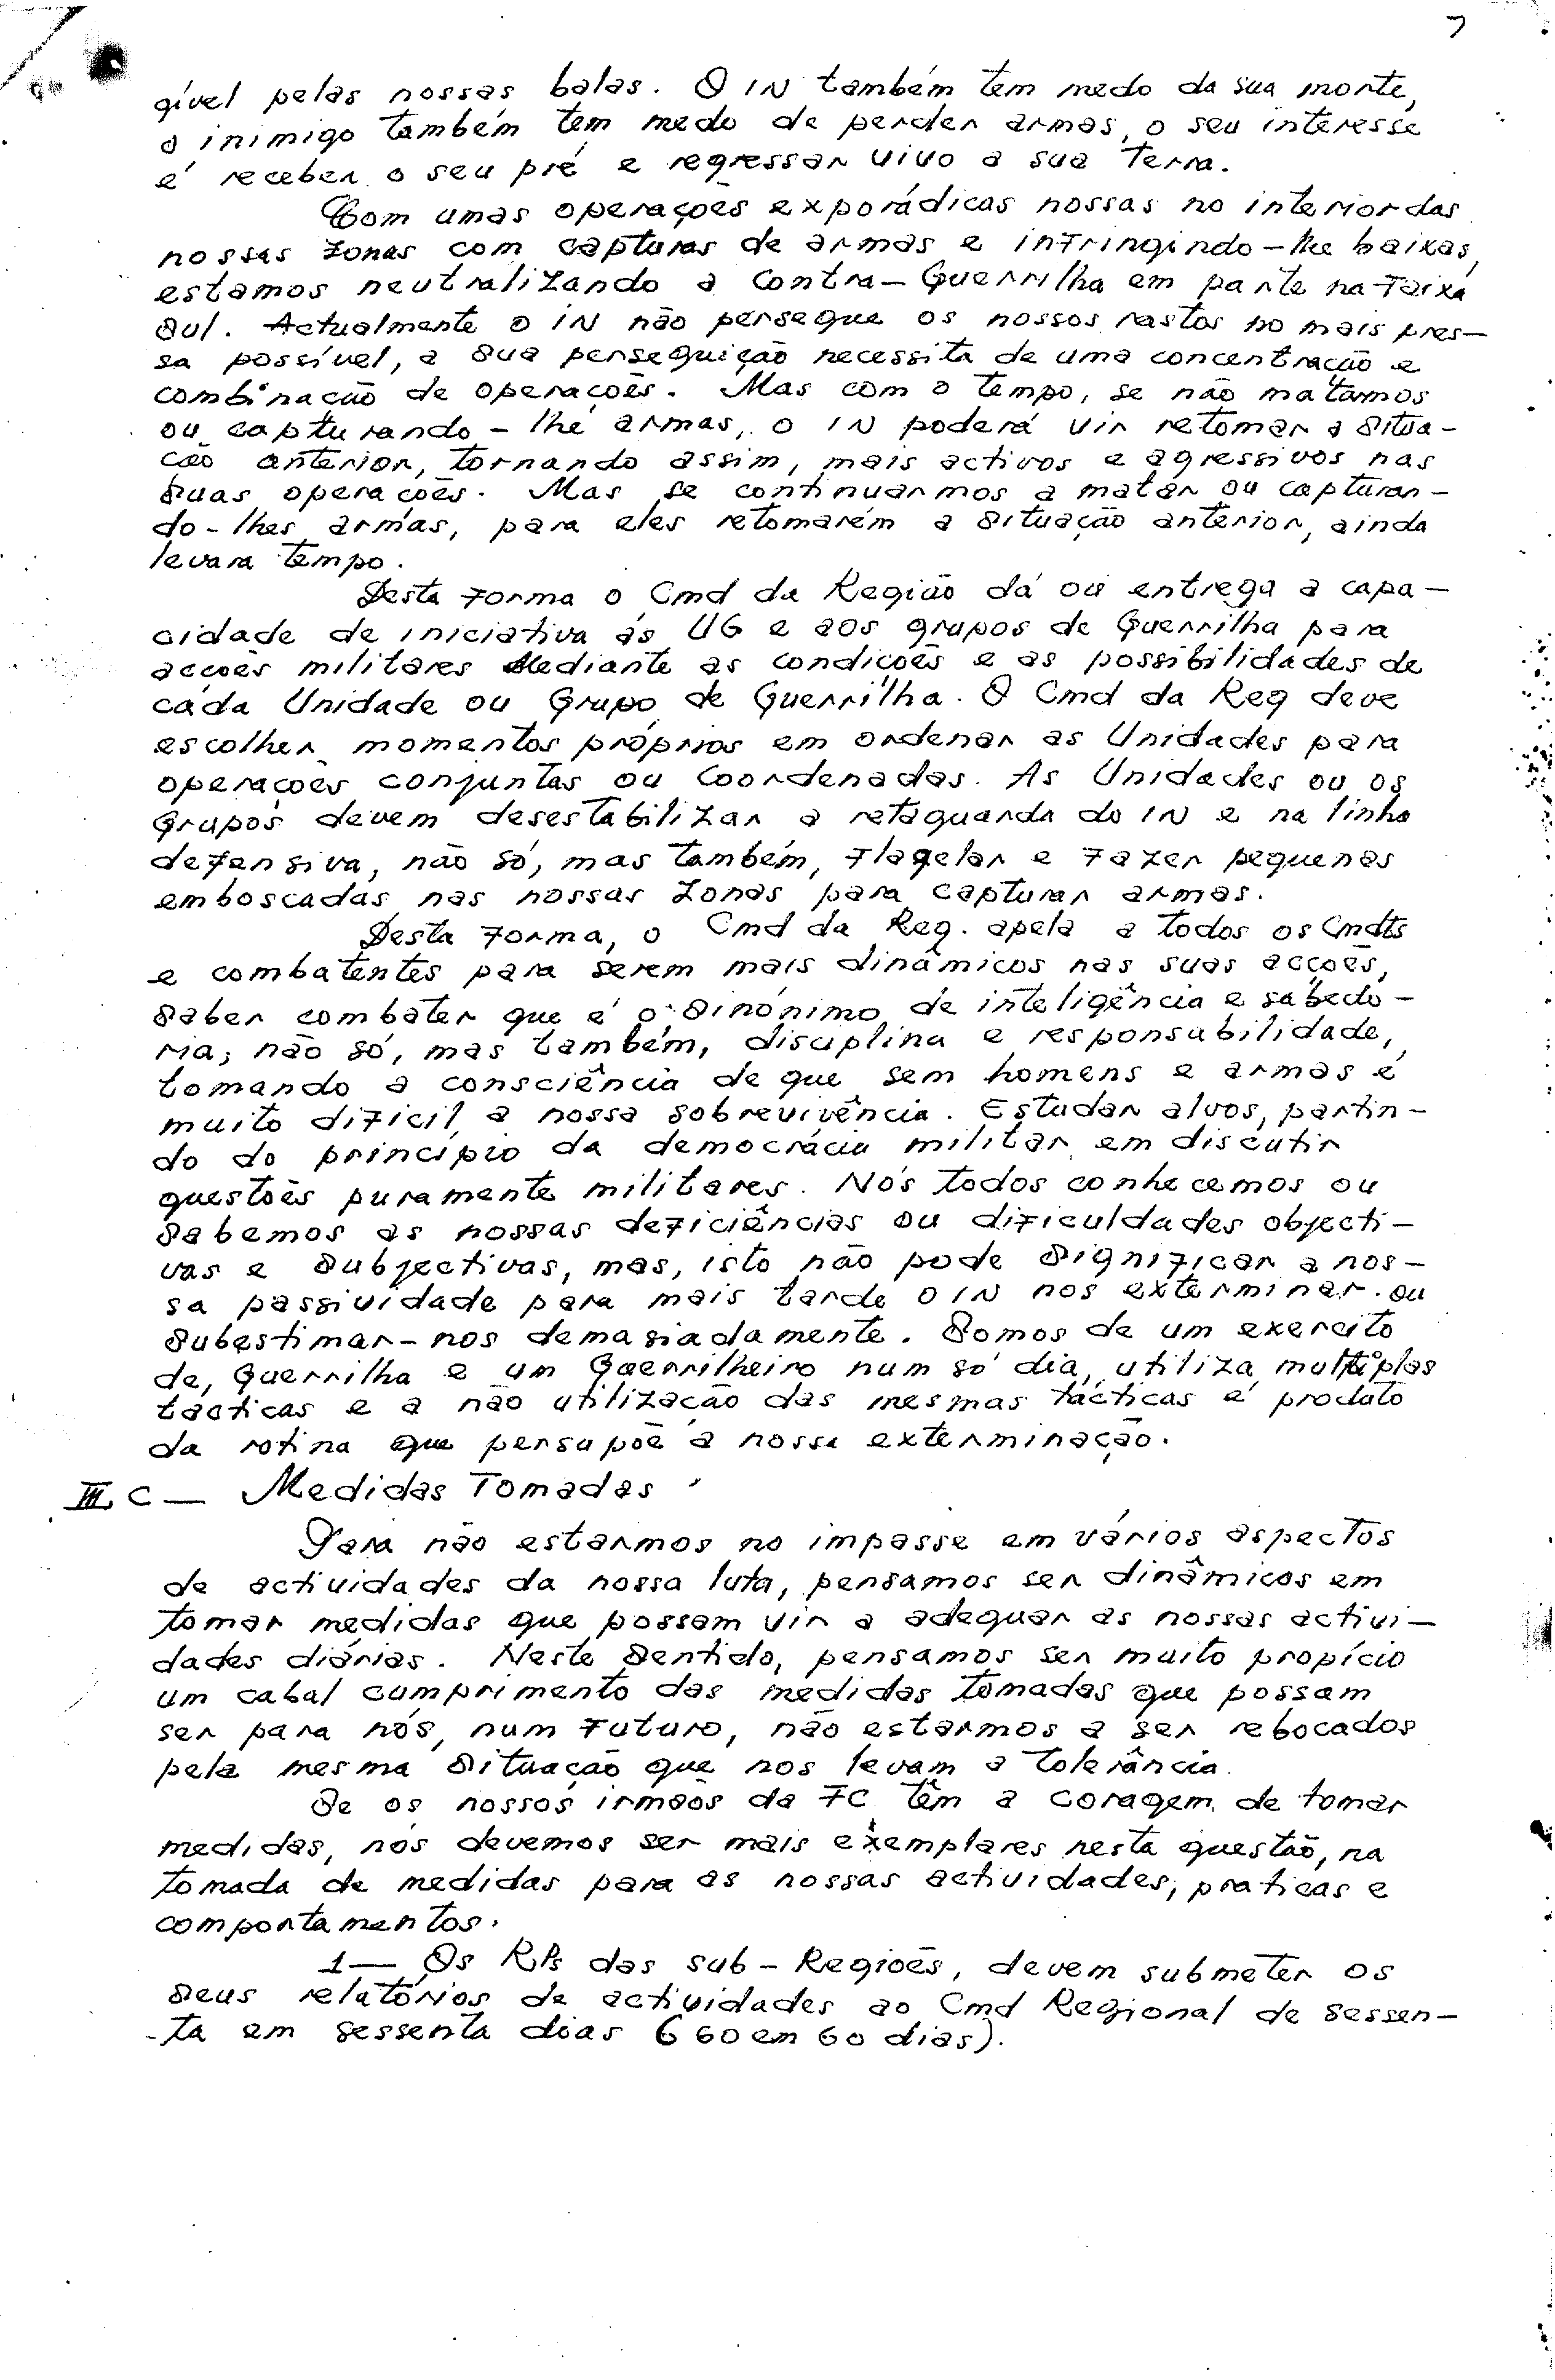 7
gível pelas nossas balas. O IN também tem medo da sua morte,
o inimigo também tem medo de perder armas, o seu interesse
é receber o seu pré e regressar vivo a sua terra.
Com umas operações exporádicas nossas no interior das
nossas zonas com capturas de armas e infringindo-lhe baixas,
estamos neutralizando a Contra-Guerrilha em parte na Faixa
Sul. Actualmente o IN não persegue os nossos rastos no mais pres-
sa possível, a sua perseguição necessita de uma concentração e
combinação de operações. Mas com o tempo, se não matarmos
ou capturando-lhe armas, o IN poderá vir retomar a situa-
ção anterior, tornando assim, mais activos e agressivos nas
suas operações. Mas se continuarmos a matar ou capturan-
do-lhes armas, para eles retomarem a situação anterior, ainda
levara tempo.
Desta forma o Cmd da Região dá ou entrega a capa-
cidade de iniciativa ás UG e aos grupos de Guerrilha para
acções militares Mediante as condições e as possibilidades de
cada Unidade ou Grupo de Guerrilha. O Cmd da Reg deve
escolher momentos próprios em ordenar as Unidades para
operações conjuntas ou Coordenadas. As Unidades ou os
Grupos devem desestabilizar a retaguarda do IN e na linha
defensiva, não só, mas também, flagelar e fazer pequenas
emboscadas nas nossas zonas para capturar armas.
Desta forma, o Cmd da Reg. apela a todos os Cmdts
e combatentes para serem mais dinâmicos nas suas acções,
saber combater que é o sinónimo de inteligência e sabedo-
ria, não só, mas também, disciplina e responsabilidade,
tomando a consciência de que sem homens e armas é
muito dificil a nossa sobrevivência. Estudar alvos, partin-
do do princípio da democrácia militar em discutir
questões puramente militares. Nós todos conhecemos ou
sabemos as nossas deficiências ou dificuldades objecti-
vas e subjectivas, mas, isto não pode significar a nos-
sa passividade para mais tarde o IN nos exterminar ou
subestimar-nos demasiadamente. Somos de um exercito
de, Guerrilha e um Guerrilheiro num só dia, utiliza multiplas
tácticas e a não utilização das mesmas tácticas é produto
da rotina que persupõe a nossa exterminação.
III. C — Medidas Tomadas
Para não estarmos no impasse em vários aspectos
de actividades da nossa luta, pensamos ser dinâmicos em
tomar medidas que possam vir a adequar as nossas activi-
dades diárias. Neste sentido, pensamos ser muito propício
um cabal cumprimento das medidas tomadas que possam
ser para nós, num futuro, não estarmos a ser rebocados
pela mesma situação que nos levam a tolerância.
Se os nossos irmãos da FC têm a coragem de tomar
medidas, nós devemos ser mais exemplares nesta questão, na
tomada de medidas para as nossas actividades, praticas e
comportamentos.
1— Os RPs das sub-Regiões, devem submeter os
seus relatórios de actividades ao Cmd Regional de sessen-
-ta em sessenta dias (60 em 60 dias).